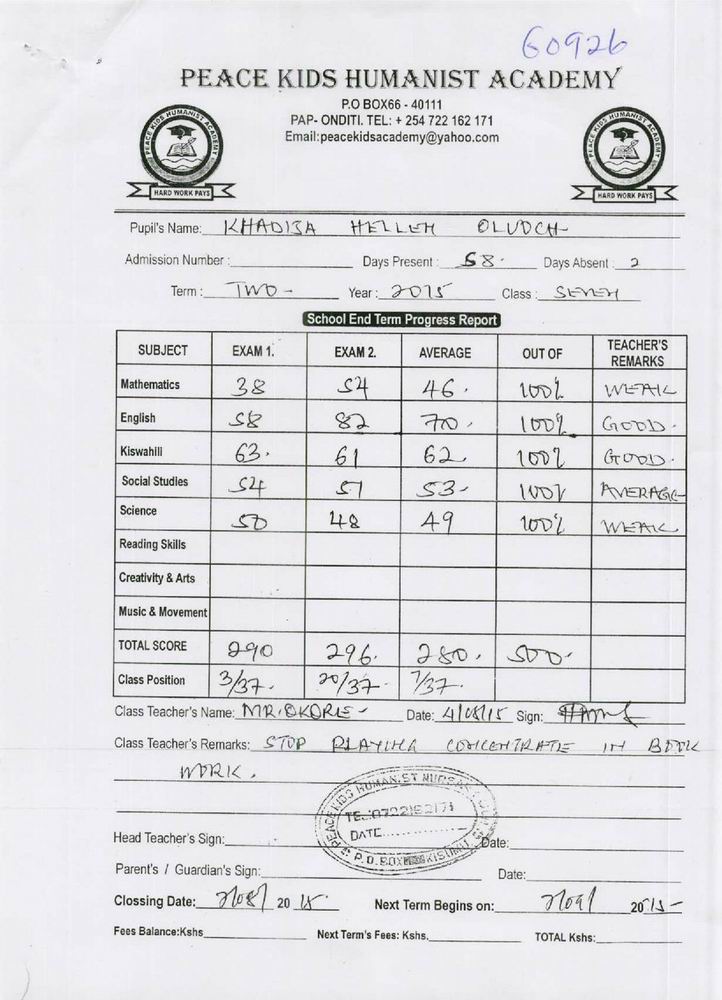 60926
PEACE KIDS HUMANIST ACADEMY
P.O BOX66 - 40111
PAP- ONDITI. TEL: + 254 722 162 171
Email:peacekidsacademy@yahoo.com
PEACE KIDS HUMANIST ACADEMY
HARD WORK PAYS
PEACE KIDS HUMANIST ACADEMY
HARD WORK PAYS
Pupil's Name: KHADIJA HELLEN OLUOCH
Admission Number : Days Present : 58. Days Absent : 2
Term : TWO - Year : 2015 Class : SEVEN
School End Term Progress Report
SUBJECT EXAM 1. EXAM 2. AVERAGE OUT OF TEACHER'S REMARKS
Mathematics 38 54 46. 100% WEAK
English 58 82 70. 100% GOOD.
Kiswahili 63. 61 62. 100% GOOD.
Social Studies 54 51 53- 100% AVERAGE
Science 50 48 49 100% WEAK.
Reading Skills
Creativity & Arts
Music & Movement
TOTAL SCORE 290 296. 280. 500.
Class Position 3/37. 20/37. 7/37.
Class Teacher's Name: MR. OKORE - Date: 4/08/15 Sign:
Class Teacher's Remarks: STOP PLAYING CONCENTRATE IN BOOK
WORK.
PEACE KIDS HUMANIST
DATE
P.O. BOX
Head Teacher's Sign: Date:
Parent's / Guardian's Sign: Date:
Clossing Date: 20 15 Next Term Begins on: 2015
Fees Balance:Kshs Next Term's Fees: Kshs. TOTAL Kshs: